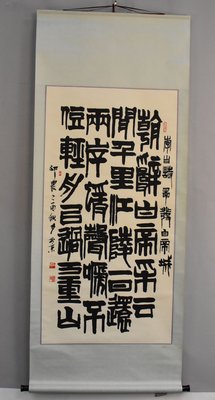 李白詩早發白帝城
朝辭白帝采云
間千里江陵一日還
兩岸猨聲嗁不
住輕舟已過万重山